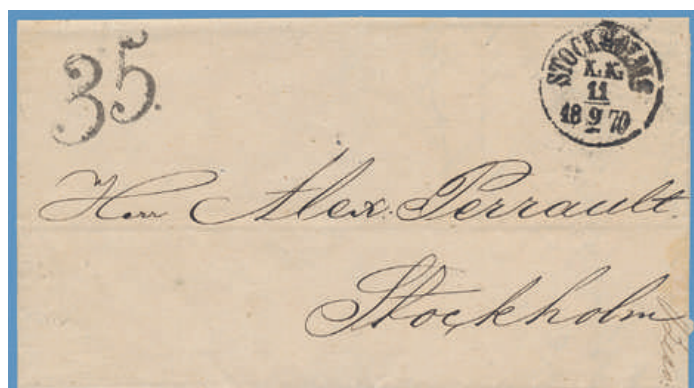 35.
STOCKHOLMS
K.K.
11
18 9 70
Herr Alex. Perrault.
Stockholm